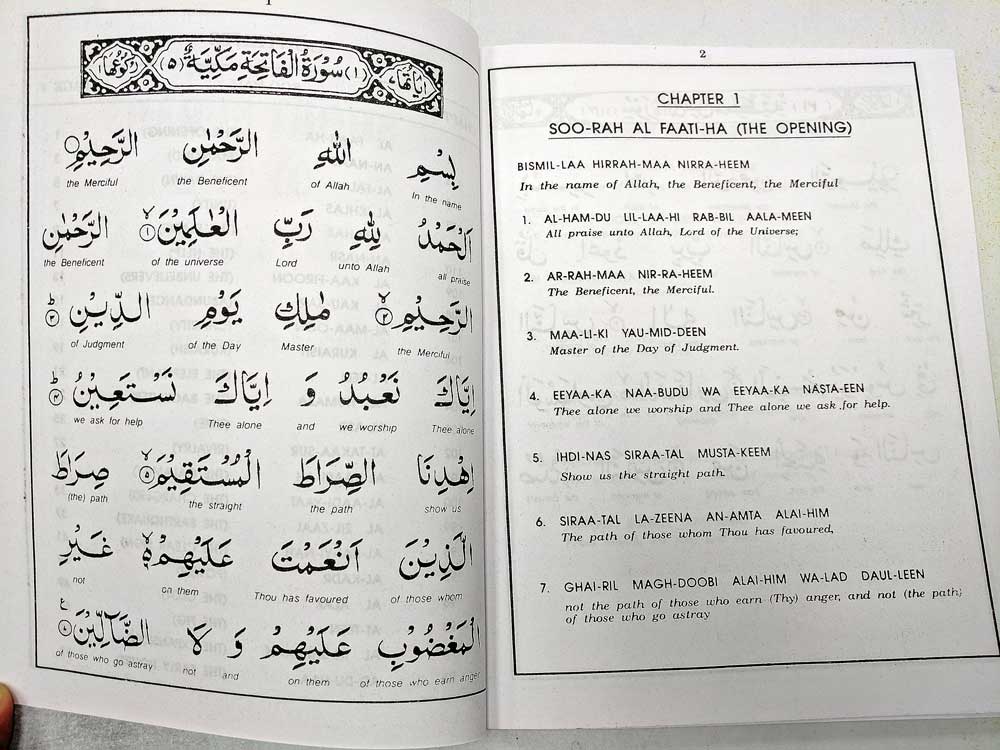 1
اياتها (١) سُوْرَةُ الْفَاتِحَةِ مَكِّيَّةٌ (٥) ركوعها
بِسْمِ اللهِ الرَّحْمٰنِ الرَّحِيْمِ
In the name of Allah the Beneficent the Merciful
اَلْحَمْدُ لِلّٰهِ رَبِّ الْعٰلَمِيْنَ ١ الرَّحْمٰنِ
all praise unto Allah Lord of the universe the Beneficent
الرَّحِيْمِ ٢ مٰلِكِ يَوْمِ الدِّيْنِ ٣
the Merciful Master of the Day of Judgment
اِيَّاكَ نَعْبُدُ وَ اِيَّاكَ نَسْتَعِيْنُ ٤
Thee alone we worship and Thee alone we ask for help
اِهْدِنَا الصِّرَاطَ الْمُسْتَقِيْمَ ٥ صِرَاطَ
show us the path the straight (the) path
الَّذِيْنَ اَنْعَمْتَ عَلَيْهِمْ غَيْرِ
of those whom Thou has favoured on them not
الْمَغْضُوْبِ عَلَيْهِمْ وَ لَا الضَّآلِّيْنَ
of those who earn anger on them and not of those who go astray
2
CHAPTER 1
SOO-RAH AL FAATI-HA (THE OPENING)
BISMIL-LAA HIRRAH-MAA NIRRA-HEEM
In the name of Allah, the Beneficent, the Merciful
1. AL-HAM-DU LIL-LAA-HI RAB-BIL AALA-MEEN
All praise unto Allah, Lord of the Universe;
2. AR-RAH-MAA NIR-RA-HEEM
The Beneficent, the Merciful.
3. MAA-LI-KI YAU-MID-DEEN
Master of the Day of Judgment.
4. EEYAA-KA NAA-BUDU WA EEYAA-KA NASTA-EEN
Thee alone we worship and Thee alone we ask for help.
5. IHDI-NAS SIRAA-TAL MUSTA-KEEM
Show us the straight path.
6. SIRAA-TAL LA-ZEENA AN-AMTA ALAI-HIM
The path of those whom Thou has favoured,
7. GHAI-RIL MAGH-DOOBI ALAI-HIM WA-LAD DAUL-LEEN
not the path of those who earn (Thy) anger, and not (the path)
of those who go astray